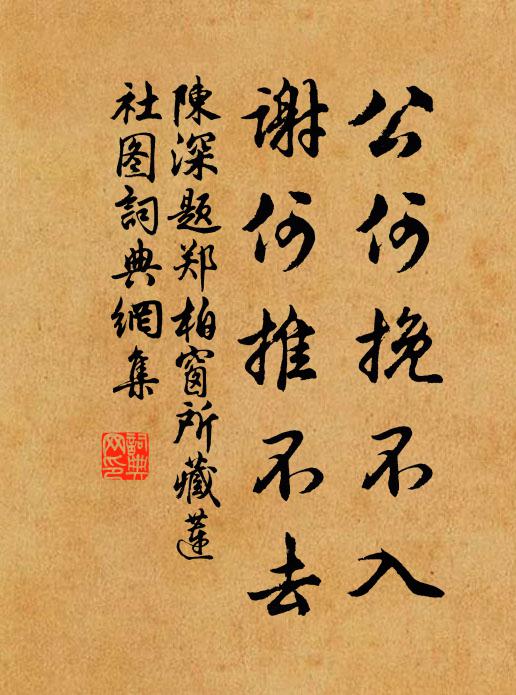 公何挽不入
谢何推不去
陳深题郑柏窗所藏莲
社图詞典網集
詞典
网印